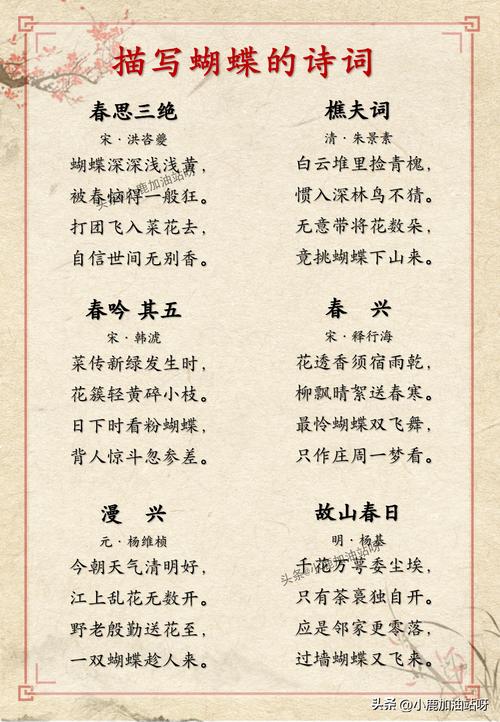 描写蝴蝶的诗词
春思三绝
宋·洪咨夔
蝴蝶深深浅浅黄，
被春恼得一般狂。
打团飞入菜花去，
自信世间无别香。
樵夫词
清·朱景素
白云堆里捡青槐，
惯入深林鸟不猜。
无意带将花数朵，
竟挑蝴蝶下山来。
春吟 其五
宋·韩淲
菜传新绿发生时，
花簇轻黄碎小枝。
日下时看粉蝴蝶，
背人惊斗忽参差。
春 兴
宋·释行海
花透香须宿雨乾，
柳飘晴絮送春寒。
最怜蝴蝶双飞舞，
只作庄周一梦看。
漫 兴
元·杨维桢
今朝天气清明好，
江上乱花无数开。
野老殷勤送花至，
一双蝴蝶趁人来。
故山春日
明·杨基
千花万萼委尘埃，
只有荼䕷独自开。
应是邻家更零落，
过墙蝴蝶又飞来。
头条@小鹿加油站呀
头条@小鹿加油站呀
头条 @小鹿加油站呀